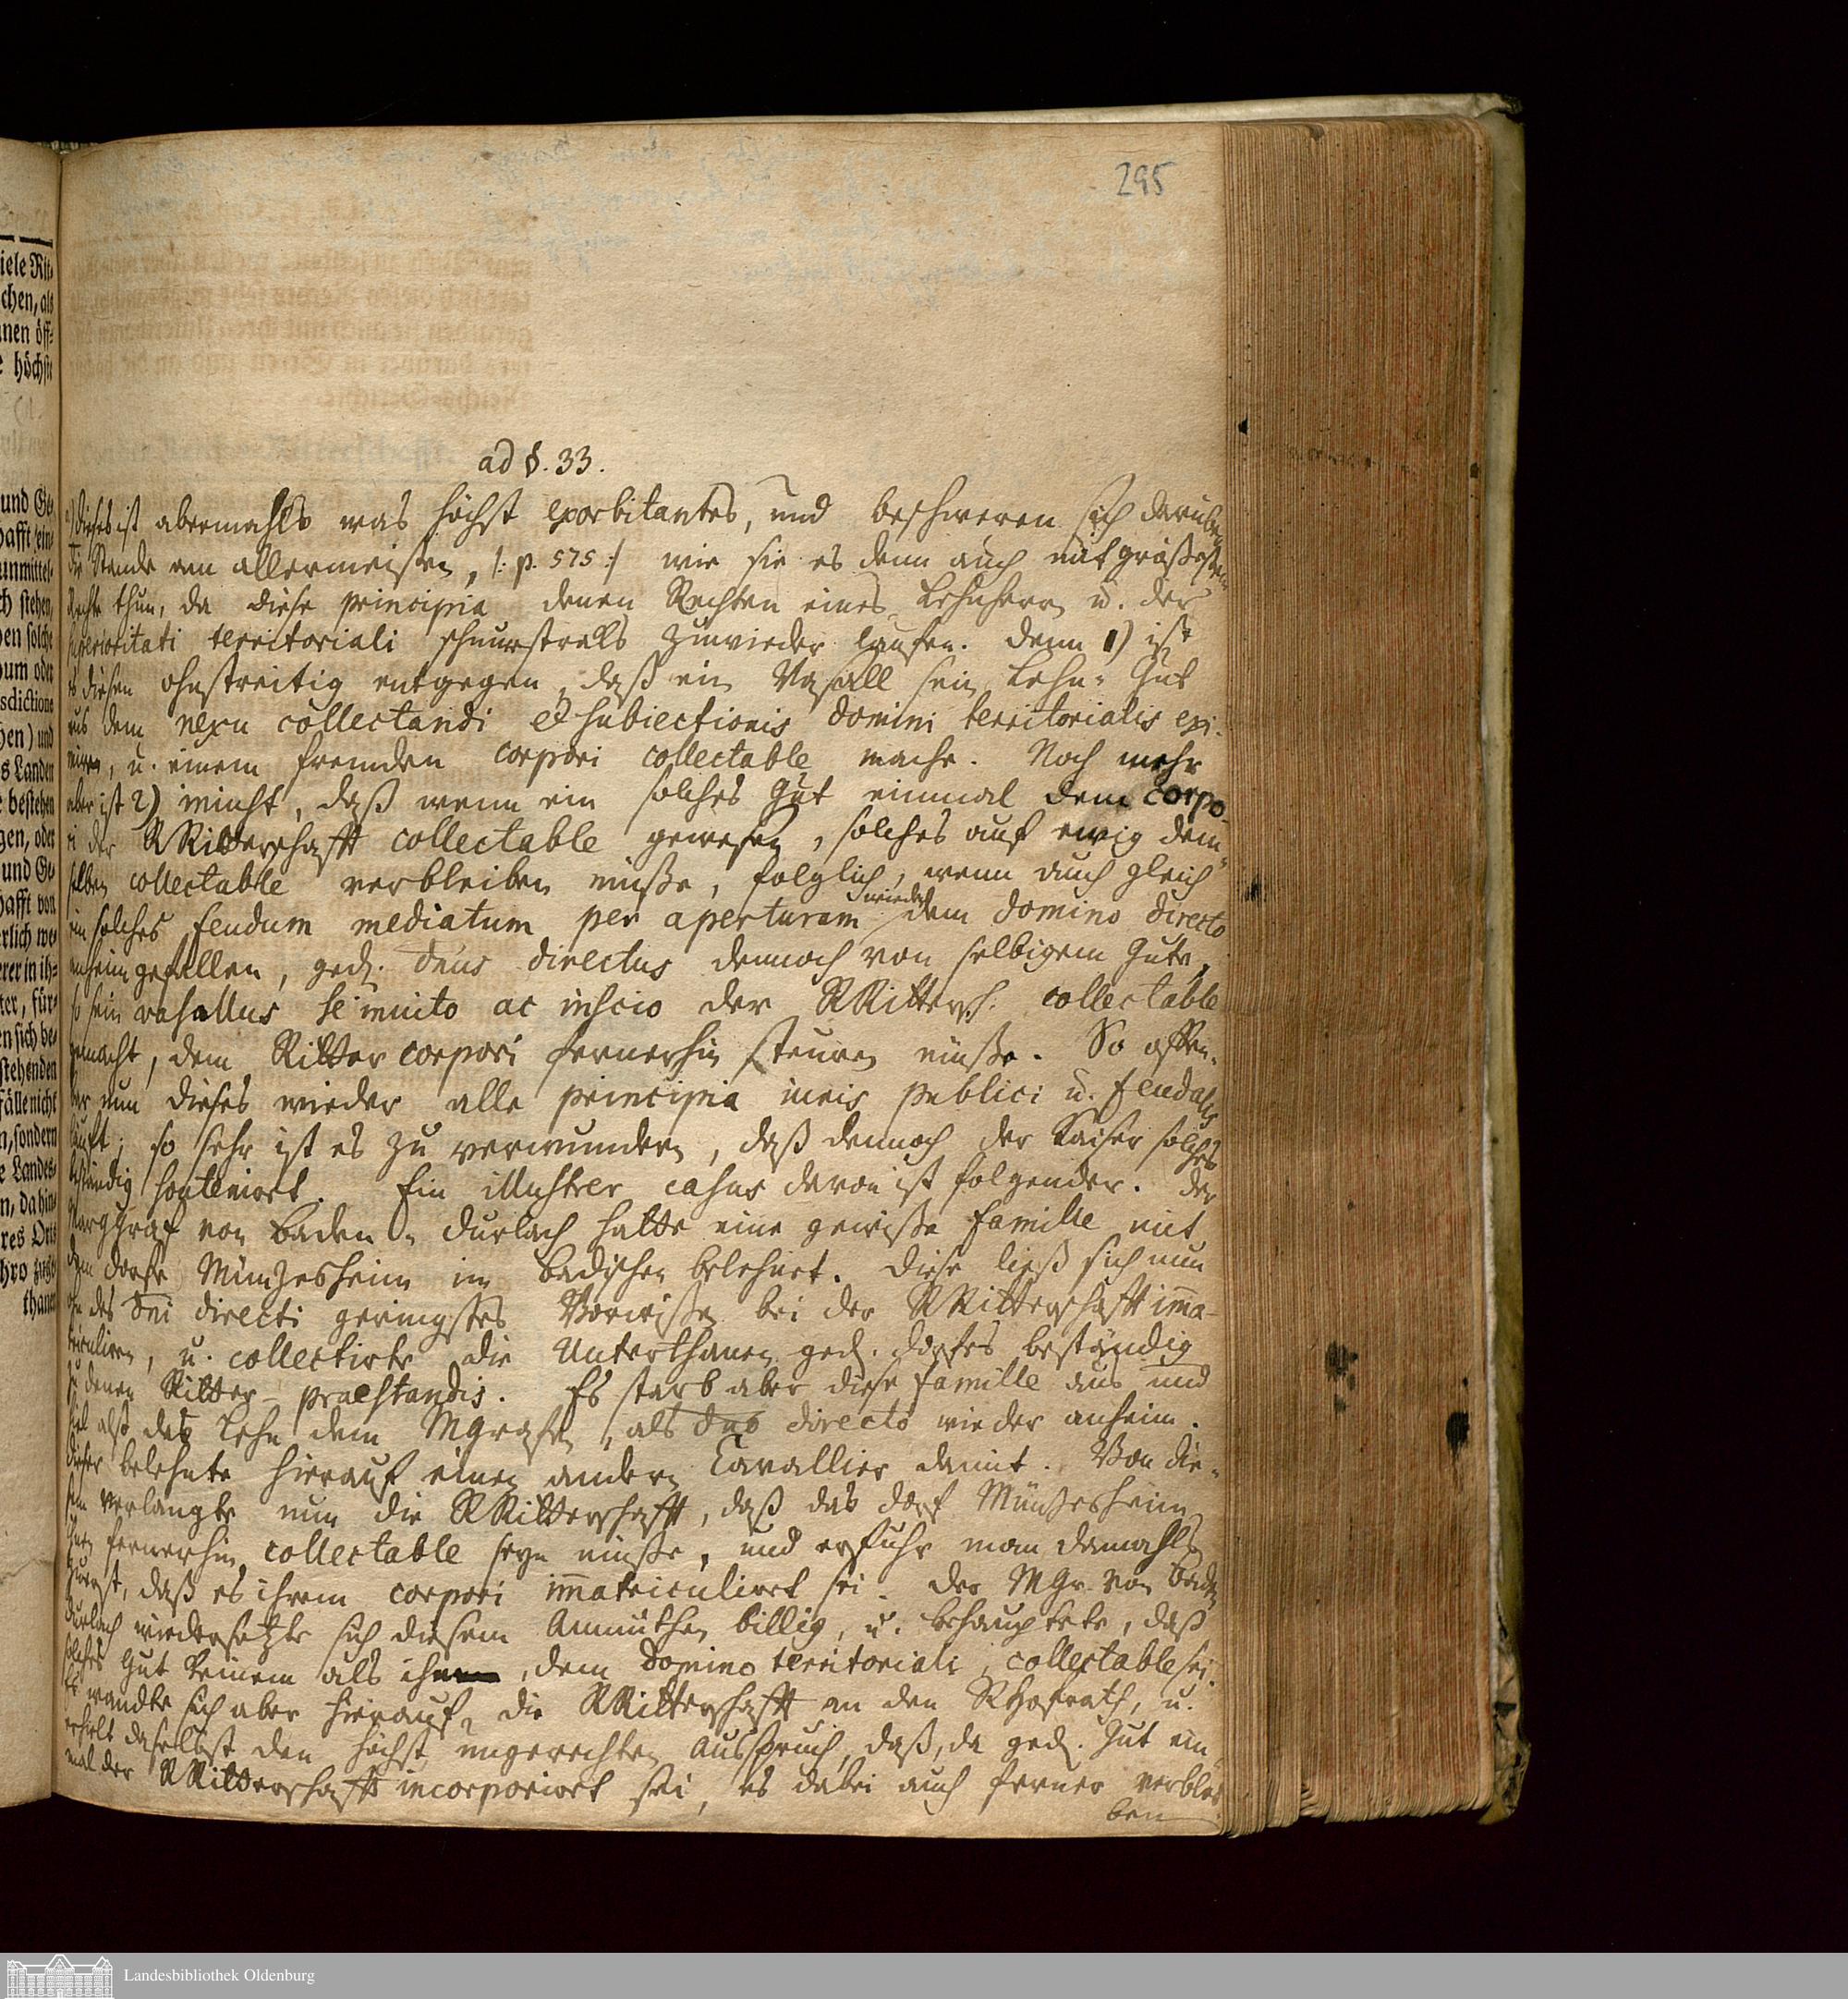 295
iele Rit-
chen, als
nen öff-
höchste
und Ge-
hafft ein-
unmittel-
ch stehen,
en solche
um oder
sdictione
hen) und
s Landen
bestehen
gen, oder
und Ge-
hafft von
rlich we-
erer in ih-
ter, für-
en sich be-
stehenden
fälle nicht
n, sondern
e Landes-
n, da hin-
res Orts
hro zuge-
thanen
ad §. 33.
dieses ist abermahls was höchst exorbitantes, und beschweren sich darüber
die Stände am allermeisten, /: p. 575 :/ wie sie es denn auch mit größestem
Rechte thun, da diese principia denen Rechten eines Lehnherrn u. der
superioritati territoriali schnurstraks zuwieder laufen. Denn 1) ist
es diesen ohnstreitig entgegen, daß ein Vasall sein Lehn-Gut
aus dem nexu collectandi et subiectionis domini territorialis exi-
miren, u. einem fremden corpori collectable mache. Noch mehr
aber ist 2) , daß wenn ein solches Gut einmal dem corpo-
ri der RRitterschafft collectable gewesen, solches auf ewig dem-
selben collectable verbleiben müsse, folglich, wenn auch gleich
ein solches feudum mediatum per aperturam wieder dem domino directo
anheimgefallen, ged. dnus directus dennoch von selbigem Gute,
so sein vasallus se invito ac inscio der RRittersch. collectable
gemacht, dem Ritter corpori fernerhin steuren müsse. So offen-
bar nun dieses wieder alle principia iuris publici u. feudalis
läuft; so sehr ist es zu verwundern, daß dennoch der Kaiser solches
beständig souteniort. Ein illustrer casus davon ist folgender. Der
MargGraf von Baden-Durlach hatte eine gewisse famille mit
dem Dorfe Münzesheim im Badischen belehnet. Diese ließ sich nun
ohn des dni directi geringstes Vorwissen bei der RRitterschafft imma-
triculiren, u. collectirte die Unterthanen ged. Dorfes beständig
zu denen Ritter-praestandis. Es starb aber diese famille aus und
fiel also das Lehn dem MGrafen, als dno directo wieder anheim.
Dieser belehnte hierauf einen andern Cavallier damit. Von die-
sem verlangte nun die RRitterschafft, daß das Dorf Münzesheim
ihnen fernerhin collectable seyn müsse, und erfuhr man damahls
zuerst, daß es ihrem corpori immatriculirt sei. Der MGr. von Baden
Durlach wiedersetzte sich diesem Anmuthen billig, u. behauptete, daß
solches Gut keinem als ihm, dem Domino territoriali, collectable sei.
Es wandte sich aber hierauf die RRitterschafft an den RHofrath, u.
erhielt daselbst den höchst ungerechten Ausspruch, daß, da ged. Gut ein-
mal der RRitterschafft incorporirt sei, es dabei auch ferner verblei-
ben
Landesbibliothek Oldenburg